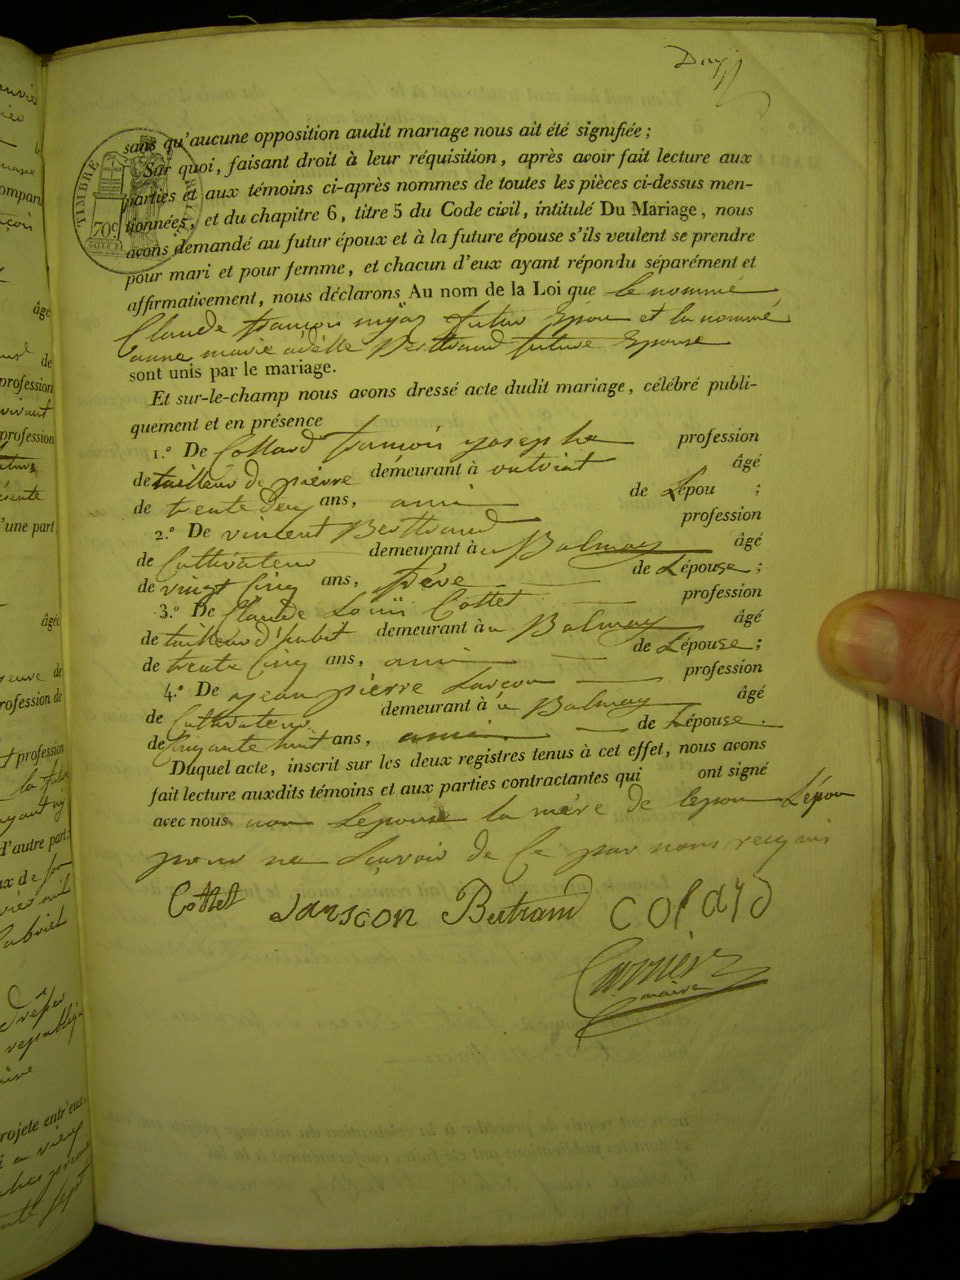 TIMBRE
70c
sans qu'aucune opposition audit mariage nous ait été signifiée ;
Sur quoi, faisant droit à leur réquisition, après avoir fait lecture aux
parties et aux témoins ci-après nommes de toutes les pièces ci-dessus men-
tionnées, et du chapitre 6, titre 5 du Code civil, intitulé Du Mariage, nous
avons demandé au futur époux et à la future épouse s'ils veulent se prendre
pour mari et pour femme, et chacun d'eux ayant répondu séparément et
affirmativement, nous déclarons Au nom de la Loi que le nommé
Claude françois futur Epou et la nommé
anne marie adelle Berthrand future Epouse
sont unis par le mariage.
Et sur-le-champ nous avons dressé acte dudit mariage, célébré publi-
quement et en présence
1.º De Collard françois yosephe profession
de tailleur de pierre demeurant à âgé
de trente deux ans, ami de Lépou ;
2.º De vincent Berthrand profession
de Cultivateur demeurant à Balmay âgé
de vingt Cinq ans, frère de Lépouse ;
3.º De Claude Loüis Cottet profession
de tailleur d'habit demeurant à Balmay âgé
de trente Cinq ans, ami de Lépouse ;
4.º De yean pierre profession
de Cultivateur demeurant à Balmay âgé
de Cinquante huit ans, ami de Lépouse.
Duquel acte, inscrit sur les deux registres tenus à cet effet, nous avons
fait lecture auxdits témoins et aux parties contractantes qui ont signé
avec nous non Lepouse la mère de lepou Lépou
pour ne Sçavoir de Ce par nous requis
Cottet Jarscon Bertrand colard
maire
âgé
de
profession
vivant
profession
'une part,
âgé
de
rofession de
profession
d'autre part
rojeté entr'eux